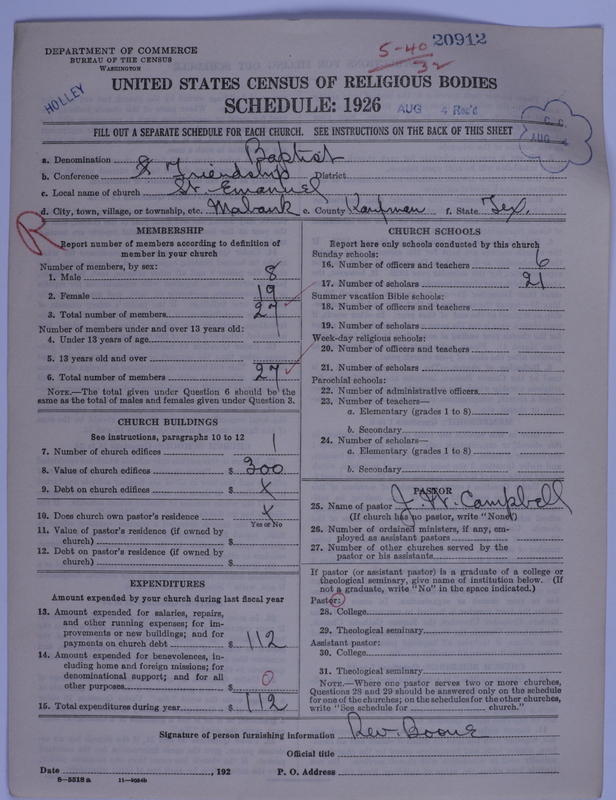 DEPARTMENT OF COMMERCE
BUREAU OF THE CENSUS
WASHINGTON
5-40
32
20912
HOLLEY
UNITED STATES CENSUS OF RELIGIOUS BODIES
SCHEDULE: 1926
AUG 4 Rec'd
C. C.
AUG 4
FILL OUT A SEPARATE SCHEDULE FOR EACH CHURCH. SEE INSTRUCTIONS ON THE BACK OF THIS SHEET
a. Denomination Baptist
b. Conference & Friendship District
c. Local name of church St. Emanuel
d. City, town, village, or township, etc. Mabank e. County Kaufman f. State Tex.
R
MEMBERSHIP
Report number of members according to definition of
member in your church
Number of members, by sex:
1. Male 8
2. Female 19
3. Total number of members 27
Number of members under and over 13 years old:
4. Under 13 years of age
5. 13 years old and over
6. Total number of members 27
NOTE.—The total given under Question 6 should be the
same as the total of males and females given under Question 3.
CHURCH BUILDINGS
See instructions, paragraphs 10 to 12
7. Number of church edifices 1
8. Value of church edifices $ 300
9. Debt on church edifices $ X
10. Does church own pastor's residence X
Yes or No
11. Value of pastor's residence (if owned by
church) $
12. Debt on pastor's residence (if owned by
church) $
EXPENDITURES
Amount expended by your church during last fiscal year
13. Amount expended for salaries, repairs,
and other running expenses; for im-
provements or new buildings; and for
payments on church debt $ 112
14. Amount expended for benevolences, in-
cluding home and foreign missions; for
denominational support; and for all
other purposes $ 0
15. Total expenditures during year $ 112
CHURCH SCHOOLS
Report here only schools conducted by this church
Sunday schools:
16. Number of officers and teachers 6
17. Number of scholars 21
Summer vacation Bible schools:
18. Number of officers and teachers
19. Number of scholars
Week-day religious schools:
20. Number of officers and teachers
21. Number of scholars
Parochial schools:
22. Number of administrative officers
23. Number of teachers—
a. Elementary (grades 1 to 8)
b. Secondary
24. Number of scholars—
a. Elementary (grades 1 to 8)
b. Secondary
PASTOR
25. Name of pastor J. W. Campbell
(If church has no pastor, write "None")
26. Number of ordained ministers, if any, em-
ployed as assistant pastors
27. Number of other churches served by the
pastor or his assistants
If pastor (or assistant pastor) is a graduate of a college or
theological seminary, give name of institution below. (If
not a graduate, write "No" in the space indicated.)
Pastor:
28. College
29. Theological seminary
Assistant pastor:
30. College
31. Theological seminary
NOTE.—Where one pastor serves two or more churches,
Questions 28 and 29 should be answered only on the schedule
for one of the churches; on the schedules for the other churches,
write "See schedule for church."
Signature of person furnishing information Rev. Boone
Official title
Date , 192 P. O. Address
8-5518a 11-9054b